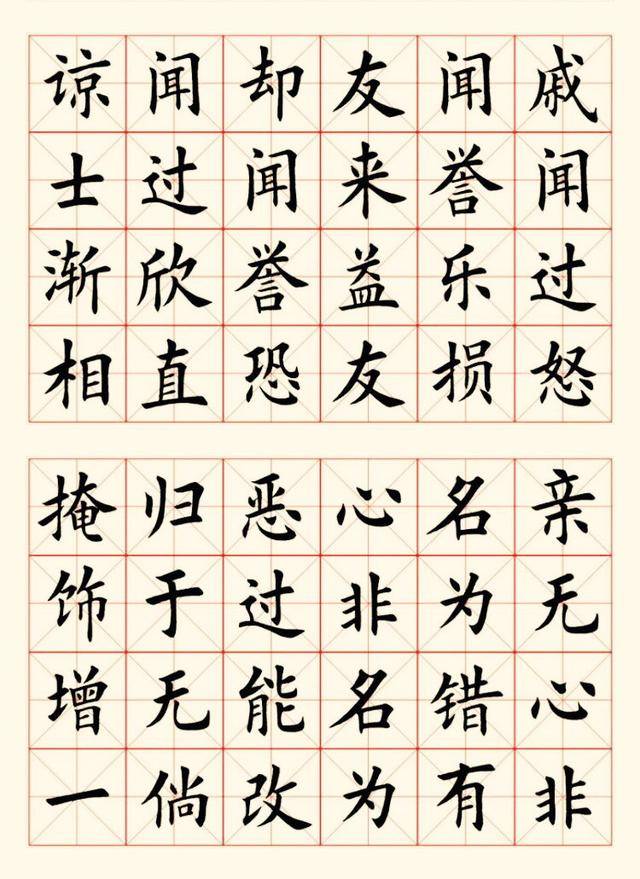 戚闻过怒
闻誉乐损
友来益友
却闻誉恐
闻过欣直
谅士渐相
亲无心非
名为错有
心非名为
恶过能改
归于无倘
掩饰增一